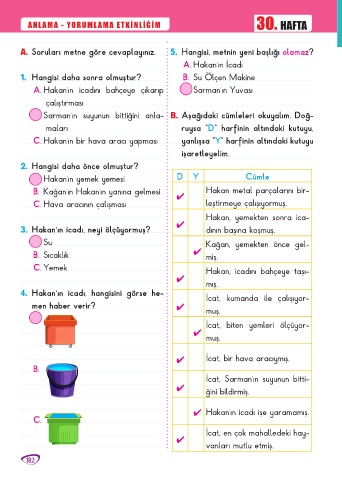 ANLAMA - YORUMLAMA ETKİNLİĞİM
30. HAFTA
A. Soruları metne göre cevaplayınız.
1. Hangisi daha sonra olmuştur?
A. Hakan'ın icadını bahçeye çıkarıp
çalıştırması
Sarman'ın suyunun bittiğini anla-
maları
C. Hakan'ın bir hava aracı yapması
2. Hangisi daha önce olmuştur?
Hakan'ın yemek yemesi
B. Kağan'ın Hakan'ın yanına gelmesi
C. Hava aracının çalışması
3. Hakan'ın icadı, neyi ölçüyormuş?
Su
B. Sıcaklık
C. Yemek
4. Hakan'ın icadı, hangisini görse he-
men haber verir?
B.
C.
182
5. Hangisi, metnin yeni başlığı olamaz?
A. Hakan'ın İcadı
B. Su Ölçen Makine
Sarman'ın Yuvası
B. Aşağıdaki cümleleri okuyalım. Doğ-
ruysa "D" harfinin altındaki kutuyu,
yanlışsa "Y" harfinin altındaki kutuyu
işaretleyelim.
D Y Cümle
Hakan metal parçalarını bir-
leştirmeye çalışıyormuş.
Hakan, yemekten sonra ica-
dının başına koşmuş.
Kağan, yemekten önce gel-
miş.
Hakan, icadını bahçeye taşı-
mış.
İcat, kumanda ile çalışıyor-
muş.
İcat, biten yemleri ölçüyor-
muş.
İcat, bir hava aracıymış.
İcat, Sarman'ın suyunun bitti-
ğini bildirmiş.
Hakan'ın icadı işe yaramamış.
İcat, en çok mahalledeki hay-
vanları mutlu etmiş.